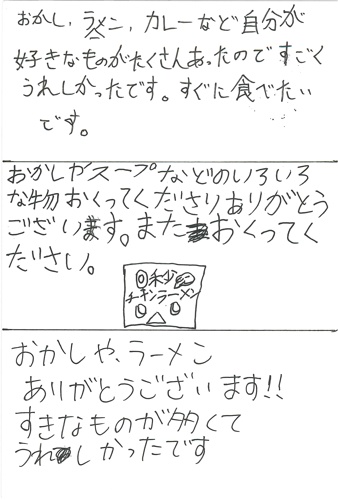 おかし、ラーメン、カレーなど自分が
好きなものがたくさんあったのですごく
うれしかったです。すぐに食べたい
です。
おかしやスープなどのいろいろ
な物おくってくださりありがとう
ございます。またおくってく
ださい。
チキンラーメン
おかしや、ラーメン
ありがとうございます!!
すきなものが多くて
うれしかったです